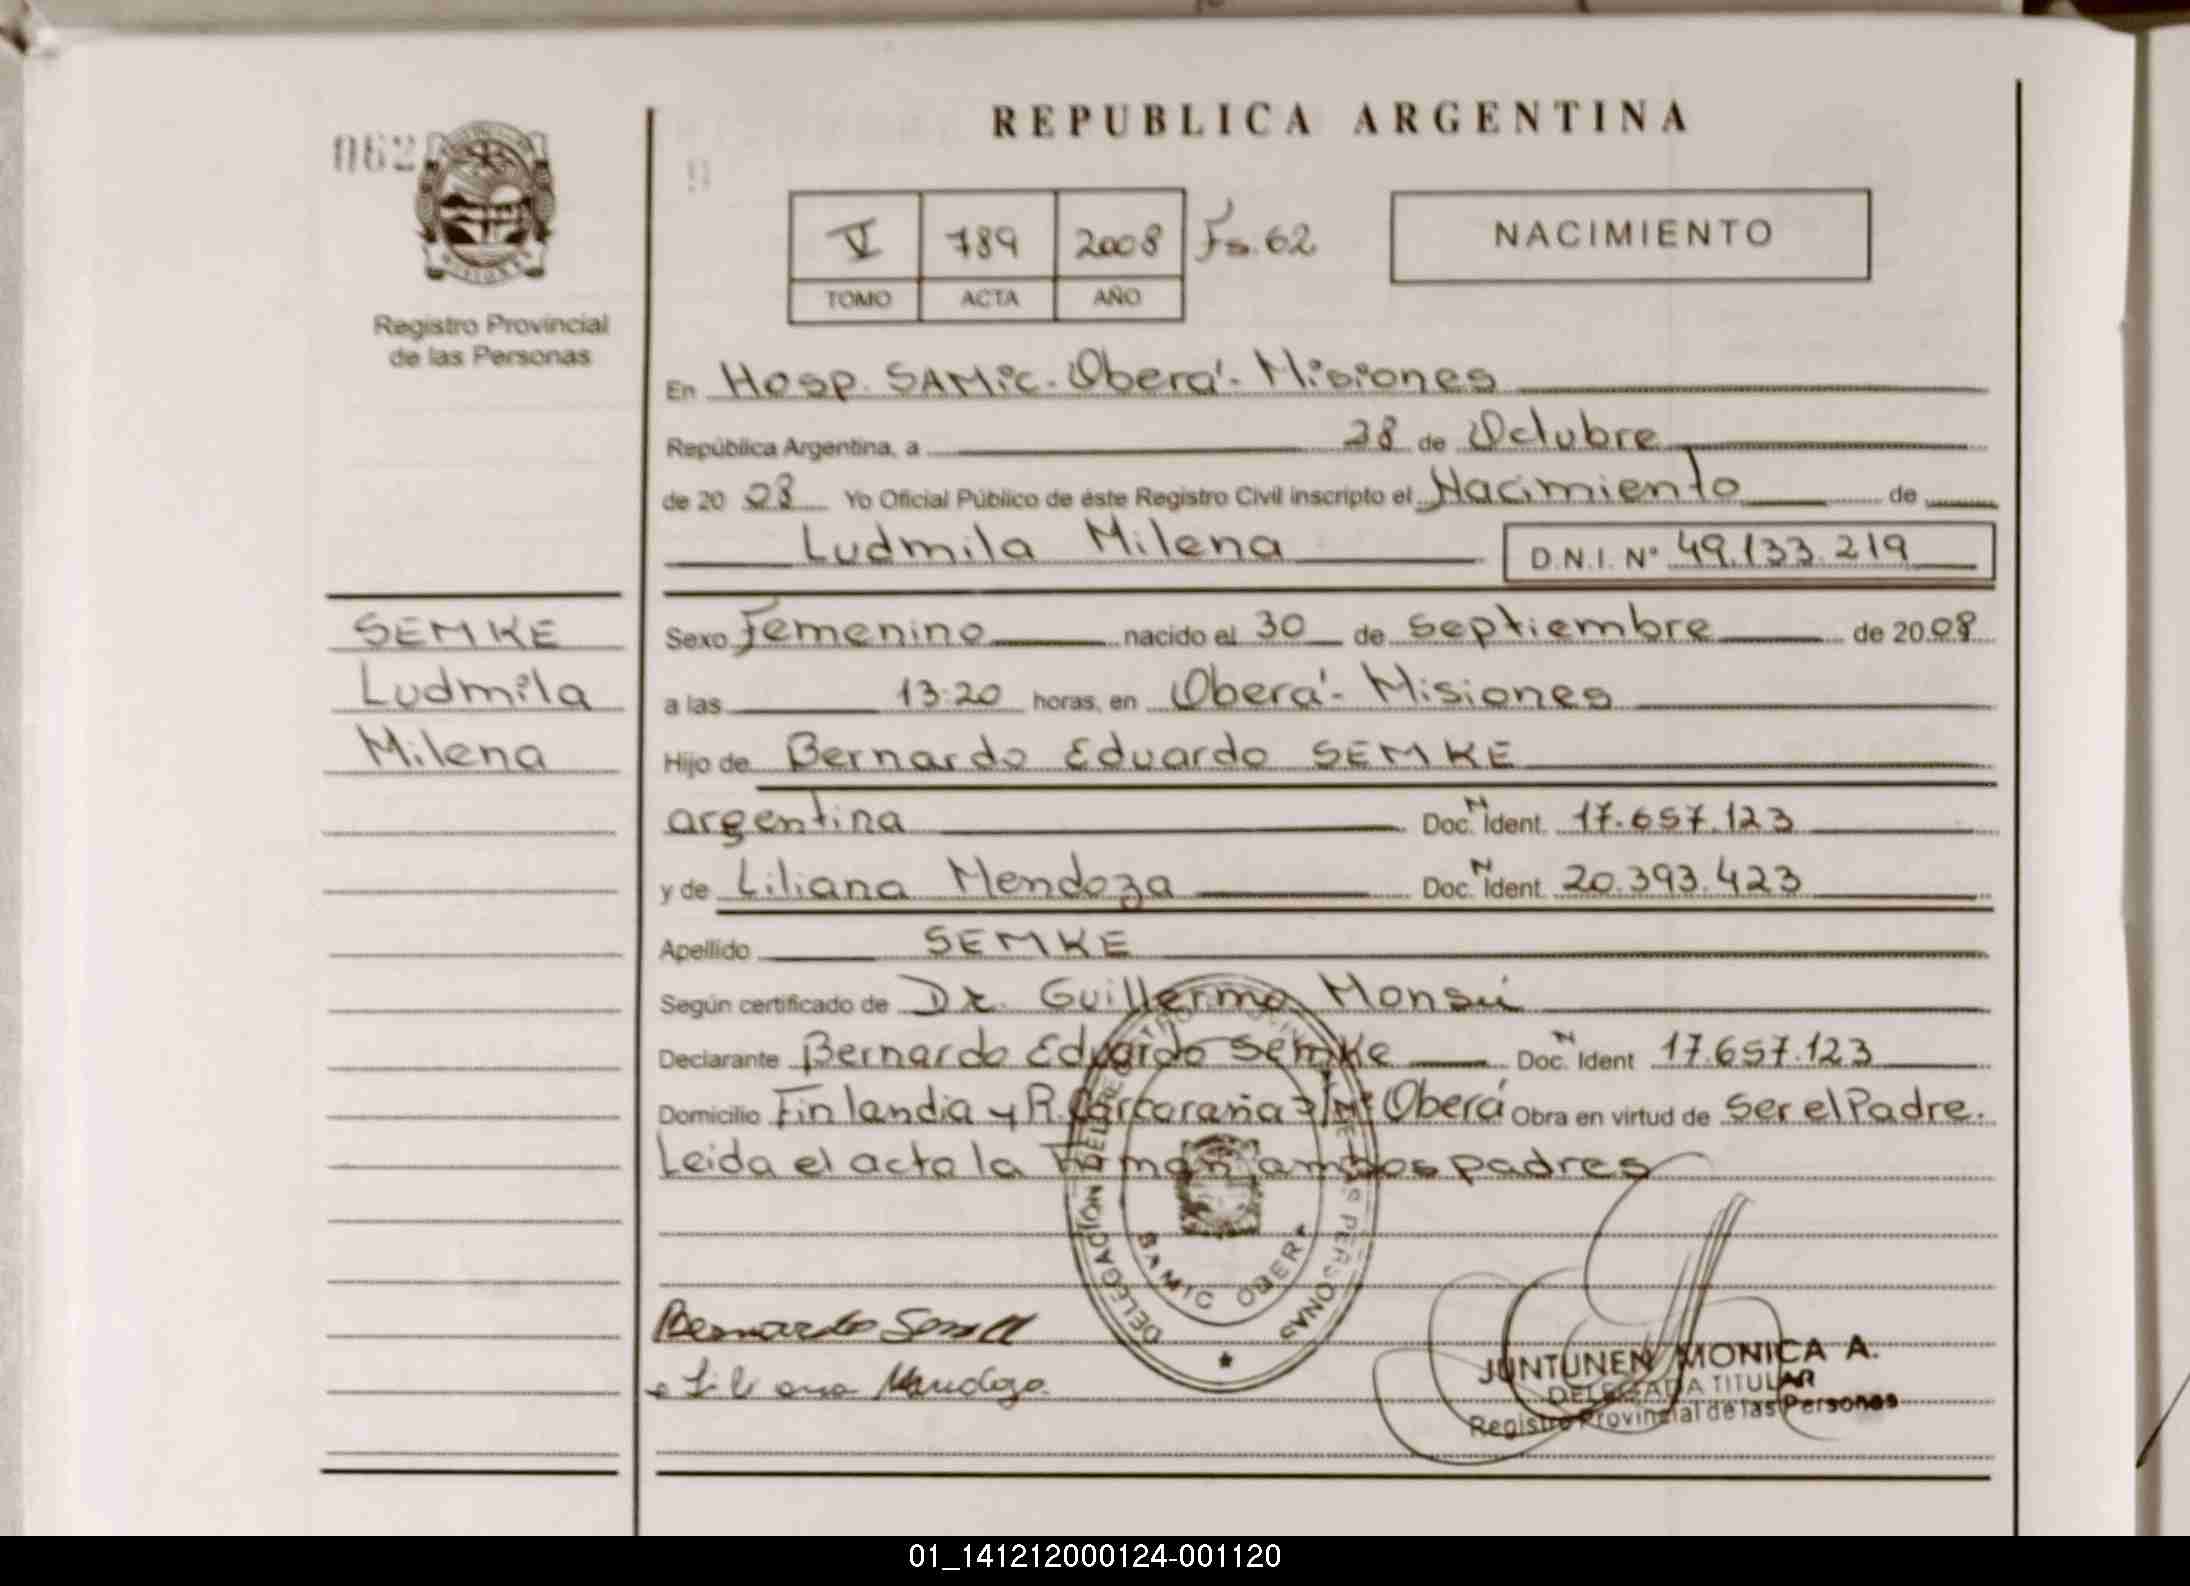 062
MISIONES
Registro Provincial
de las Personas
SEMKE
Ludmila
Milena
REPUBLICA ARGENTINA
V 789 2008 Fs. 62
TOMO ACTA AÑO
NACIMIENTO
En Hosp. SAMic. Oberá - Misiones
República Argentina, a 28 de Octubre
de 20 08 Yo Oficial Público de éste Registro Civil inscripto el Nacimiento de
Ludmila Milena D.N.I. N° 49.133.219
Sexo Femenino nacido el 30 de Septiembre de 20 08
a las 13:20 horas, en Oberá - Misiones
Hijo de Bernardo Eduardo SEMKE
argentina Doc. N Ident. 17.657.123
y de Liliana Mendoza Doc. N Ident. 20.393.423
Apellido SEMKE
Según certificado de Dr. Guillermo Monsú
Declarante Bernardo Eduardo Semke Doc. N Ident 17.657.123
Domicilio Finlandia y R. Carcaraña Oberá Obra en virtud de Ser el Padre.
Leida el acta la Firman ambos padres
DELEGACIÓN DEL REGISTRO PROVINCIAL DE LAS PERSONAS
SAMIC OBERA
Bernardo
Liliana Mendoza
JUNTUNEN MONICA A.
DELEGADA TITULAR
Registro Provincial de las Personas
01_141212000124-001120